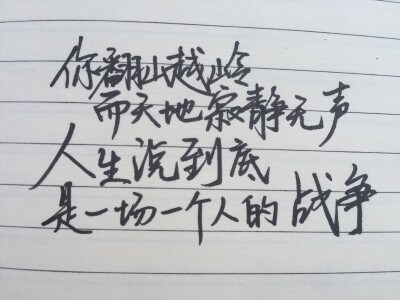 你翻山越岭
而天地寂静无声
人生说到底
是一场一个人的战争